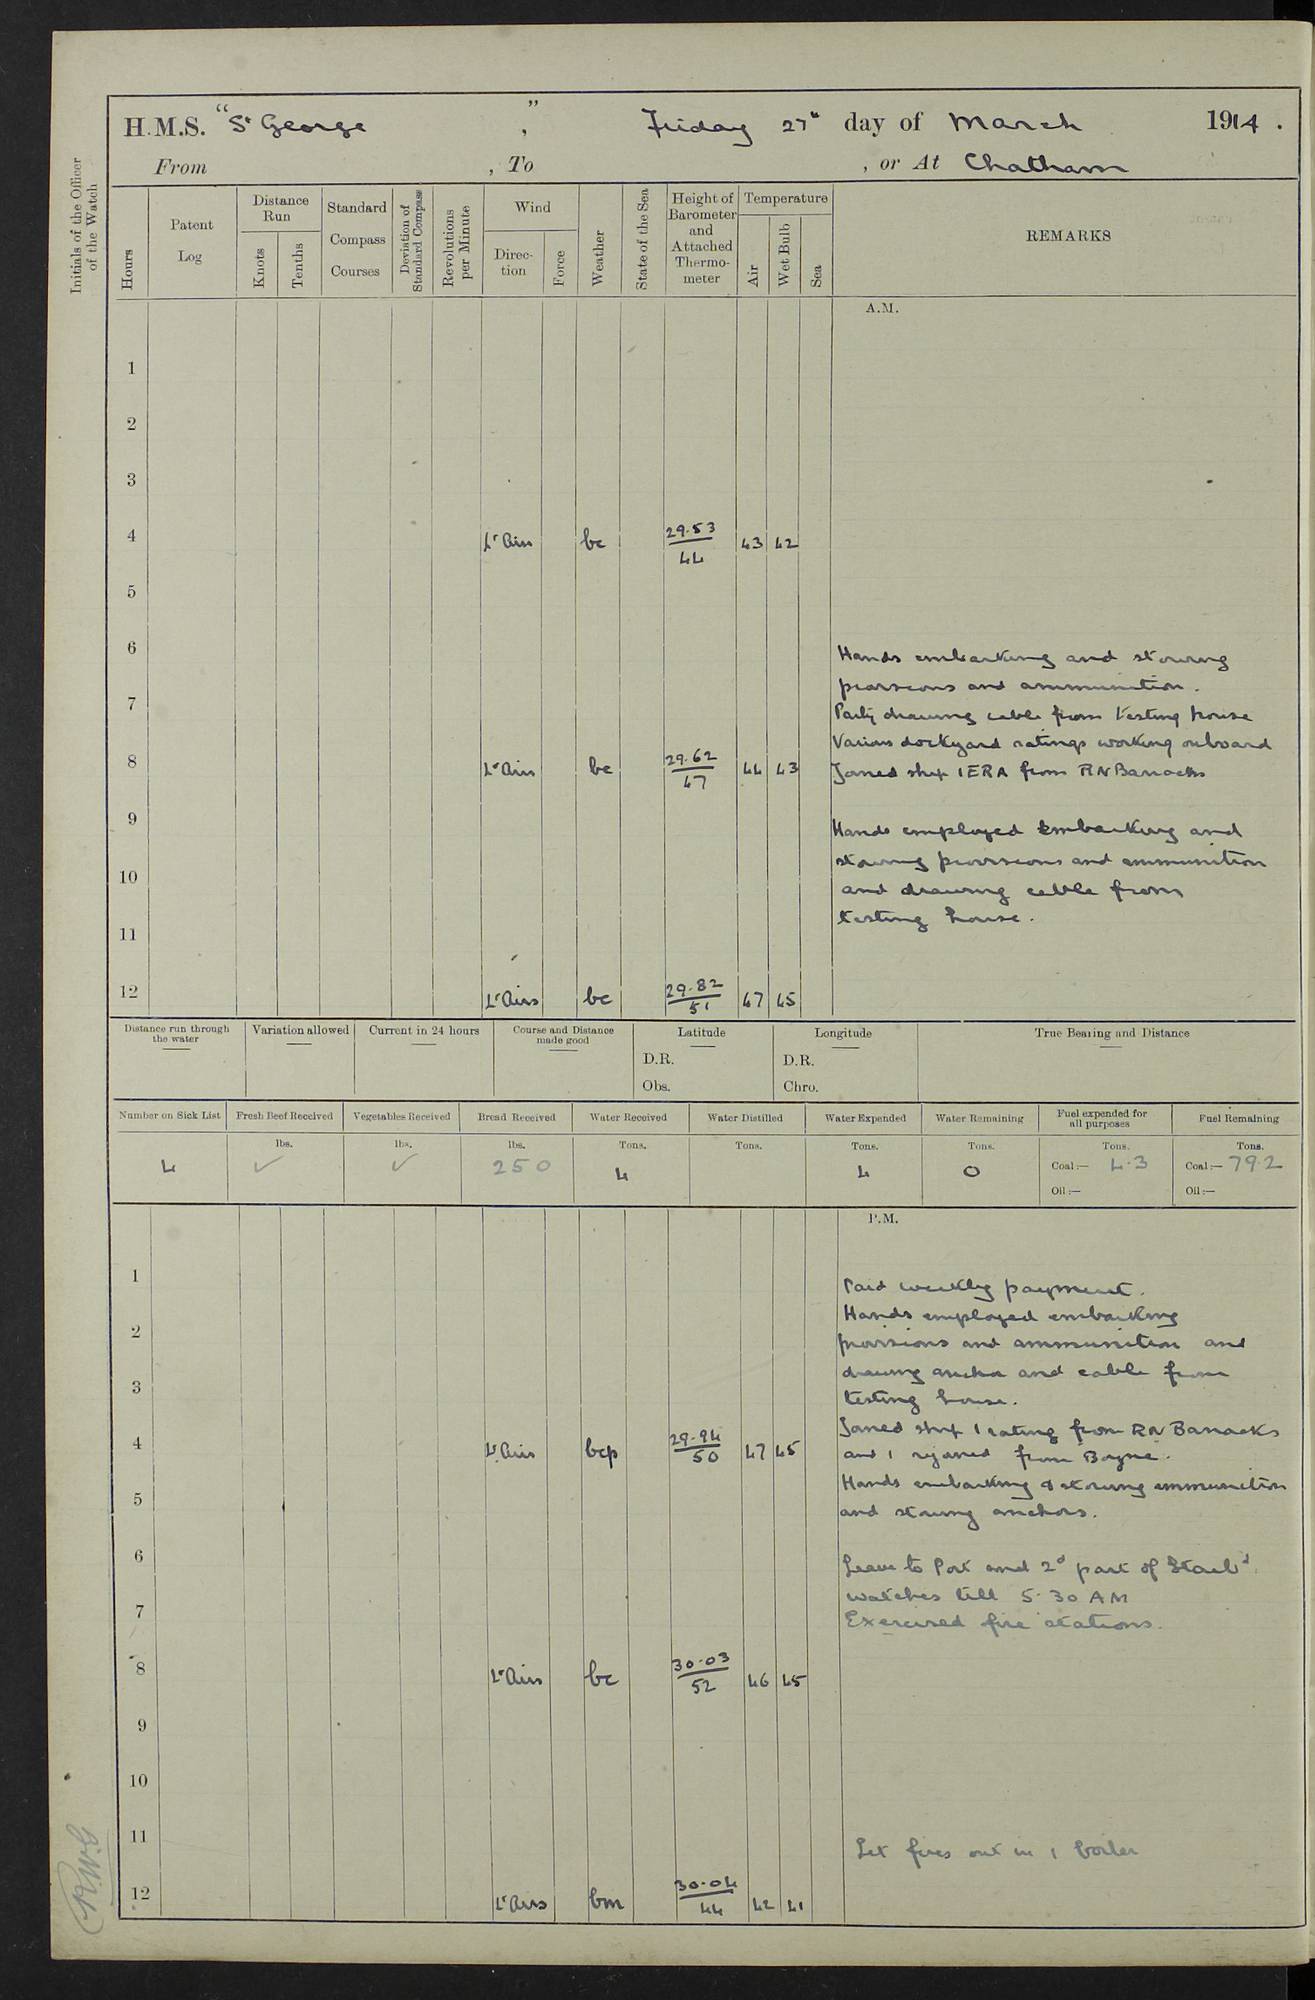 H.M.S. "St George", Friday 27th day of March 1914.
From , To , or At Chatham
Initials of the Officer of the Watch
Hours
Patent Log
Distance Run
Knots
Tenths
Standard Compass Courses
Deviation of Standard Compass
Revolutions per Minute
Wind
Direction
Force
Weather
State of the Sea
Height of Barometer and Attached Thermometer
Temperature
Air
Wet Bulb
Sea
REMARKS
A.M.
1
2
3
4 Lt Airs bc 29.53/44 43 42
5
6
Hands embarking and stowing
provisions and ammunition.
7
Party drawing cable from testing house
Various dockyard ratings working onboard
8 Lt Airs bc 29.62/47 44 43 Joined ship 1 ERA from RN Barracks
9
Hands employed embarking and
stowing provisions and ammunition
10
and drawing cable from
testing house.
11
12 Lt Airs bc 29.82/51 47 45
Distance run through the water
Variation allowed
Current in 24 hours
Course and Distance made good
Latitude
D.R.
Obs.
Longitude
D.R.
Chro.
True Bearing and Distance
Number on Sick List
4
Fresh Beef Received
lbs.
✓
Vegetables Received
lbs.
✓
Bread Received
lbs.
250
Water Received
Tons.
4
Water Distilled
Tons.
Water Expended
Tons.
4
Water Remaining
Tons.
0
Fuel expended for all purposes
Tons.
Coal:— 4.3
Oil:—
Fuel Remaining
Tons.
Coal:— 792
Oil:—
P.M.
1
Paid weekly payment.
Hands employed embarking
2
provisions and ammunition and
drawing anchor and cable from
3
testing house.
Joined ship 1 rating from RN Barracks
4 Lt Airs bcp 29.94/50 47 45
and 1 rejoined from Boyne.
Hands embarking & stowing ammunition
5
and stowing anchors.
6
Leave to Port and 2d part of Starbd
watches till 5.30 AM
7
Exercised fire stations.
8 Lt Airs bc 30.03/52 46 45
9
10
11
Let fires out in 1 boiler
12 Lt Airs bm 30.04/44 42 41
R.W.G